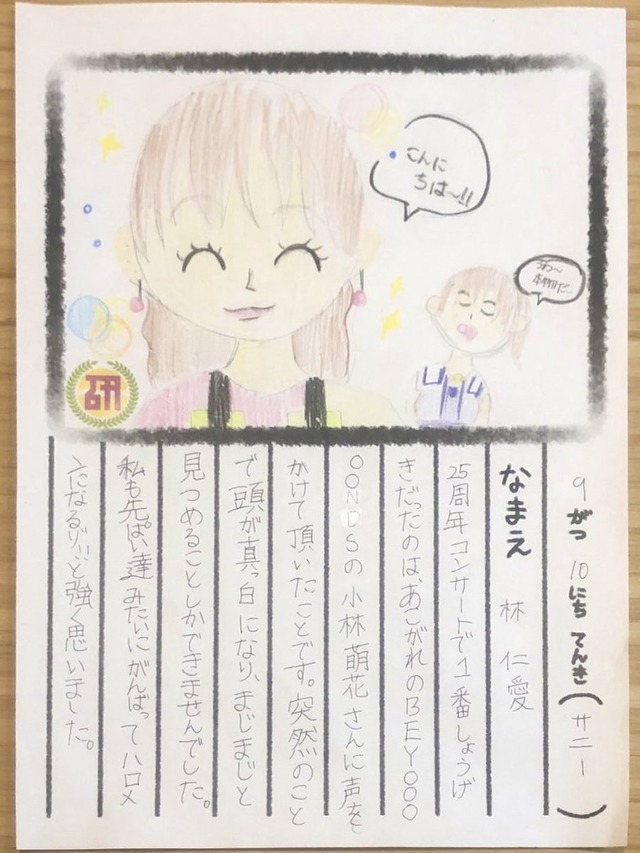 こんに
ちは〜!!
うわ〜
本物だ〜
研
9がつ10にちてんき(サニー)
なまえ 林 仁愛
25周年コンサートで1番しょうげ
きだったのは、あこがれのBEYOOO
OONDSの小林萌花さんに声を
かけて頂いたことです。突然のこと
で頭が真っ白になり、まじまじと
見つめることしかできませんでした。
私も先ぱい達みたいにがんばってハロメ
ンになるゾ!!と強く思いました。